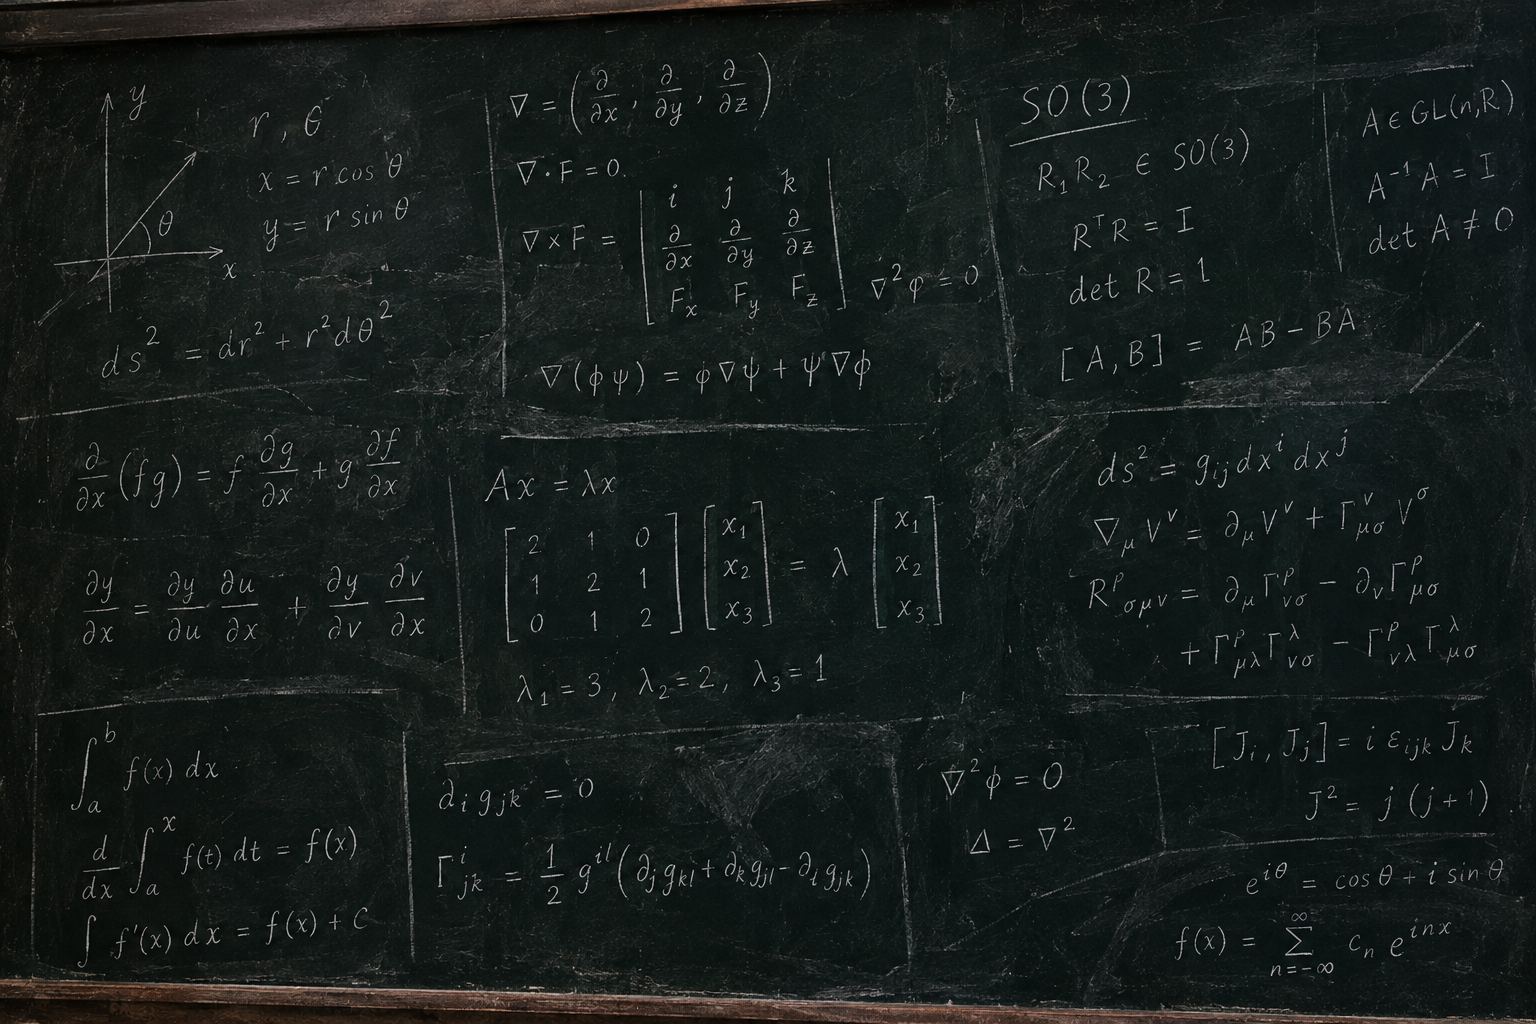 y
r , θ
x = r cos θ
y = r sin θ
θ
x
ds² = dr² + r²dθ²
∇ = (∂/∂x, ∂/∂y, ∂/∂z)
∇·F = 0
∇×F = | i j k |
| ∂/∂x ∂/∂y ∂/∂z |
| F_x F_y F_z |
∇²φ = 0
∇(ϕψ) = ϕ∇ψ + ψ∇ϕ
SO(3)
R₁R₂ ∈ SO(3)
RᵀR = I
det R = 1
[A, B] = AB − BA
A ∈ GL(n,R)
A⁻¹A = I
det A ≠ 0
∂/∂x (fg) = f ∂g/∂x + g ∂f/∂x
∂y/∂x = ∂y/∂u ∂u/∂x + ∂y/∂v ∂v/∂x
Ax = λx
[2 1 0] [x₁] [x₁]
[1 2 1] [x₂] = λ [x₂]
[0 1 2] [x₃] [x₃]
λ₁ = 3, λ₂ = 2, λ₃ = 1
ds² = g_{ij} dx^i dx^j
∇_μ V^ν = ∂_μ V^ν + Γ^ν_{μσ} V^σ
R^ρ_{σμν} = ∂_μ Γ^ρ_{νσ} − ∂_ν Γ^ρ_{μσ}
+ Γ^ρ_{μλ} Γ^λ_{νσ} − Γ^ρ_{νλ} Γ^λ_{μσ}
∫_a^b f(x) dx
d/dx ∫_a^x f(t) dt = f(x)
∫ f'(x) dx = f(x) + C
∂_i g_{jk} = 0
Γ^i_{jk} = 1/2 g^{il} (∂_j g_{kl} + ∂_k g_{jl} − ∂_i g_{jk})
∇²ϕ = 0
Δ = ∇²
[J_i, J_j] = i ε_{ijk} J_k
J² = j (j+1)
e^{iθ} = cos θ + i sin θ
f(x) = ∑_{n=−∞}^{∞} c_n e^{inx}